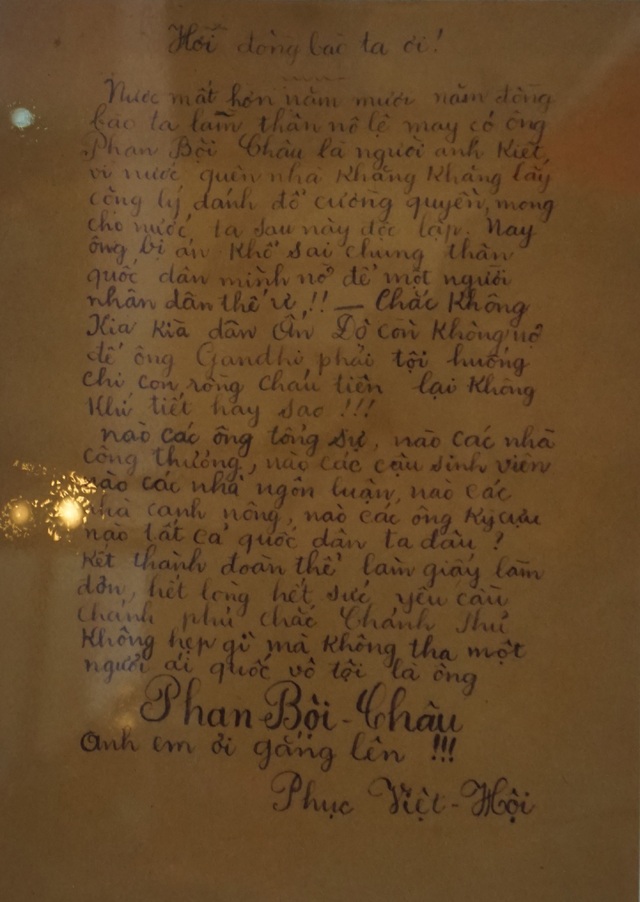 Hỡi đồng bào ta ơi!
Nước mất hơn năm mươi năm đồng
bào ta làm thân nô lệ may có ông
Phan Bội Châu là người anh kiệt,
vì nước quên nhà khăng khăng lấy
công lý đánh đổ cường quyền, mong
cho nước ta sau này độc lập. Nay
ông bị án khổ sai chung thân
quốc dân mình nỡ để một người
nhân dân thế ư!! — Chắc không
Kia kìa dân Ấn Độ còn không nỡ
để ông Gandhi phải tội huống
chi con rồng cháu tiên lại không
khí tiết hay sao!!!
nào các ông tổng sự, nào các nhà
công thương, nào các cậu sinh viên
nào các nhà ngôn luận, nào các
nhà canh nông, nào các ông kỳ cựu
nào tất cả quốc dân ta đâu?
Kết thành đoàn thể làm giấy làm
đơn, hết lòng hết sức yêu cầu
chánh phủ chắc Chánh Phủ
không hẹp gì mà không tha một
người ái quốc vô tội là ông
Phan Bội-Châu
Anh em ơi gắng lên !!!
Phục Việt-Hội